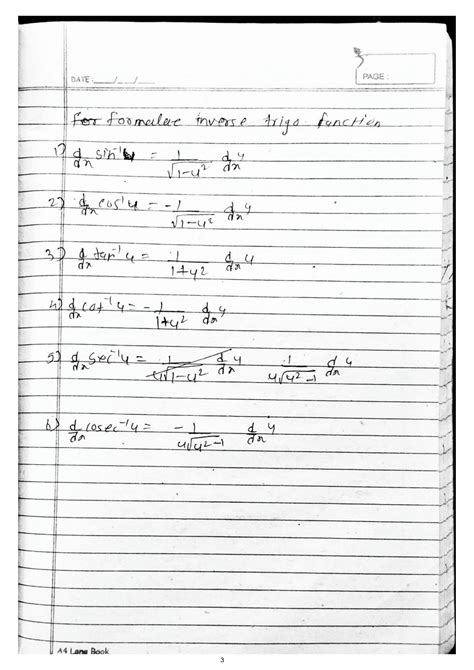 DATE : __/__/__
PAGE :
For Formulae inverse trigo function
1) d/dx sin⁻¹u = 1/√1-u² d/dx u
2) d/dx cos⁻¹u = -1/√1-u² d/dx u
3) d/dx tan⁻¹u = 1/1+u² d/dx u
4) d/dx cot⁻¹u = -1/1+u² d/dx u
5) d/dx sec⁻¹u = 1/u√1-u² d/dx u 1/u√u²-1 d/dx u
6) d/dx cosec⁻¹u = -1/u√u²-1 d/dx u
A4 Long Book
3